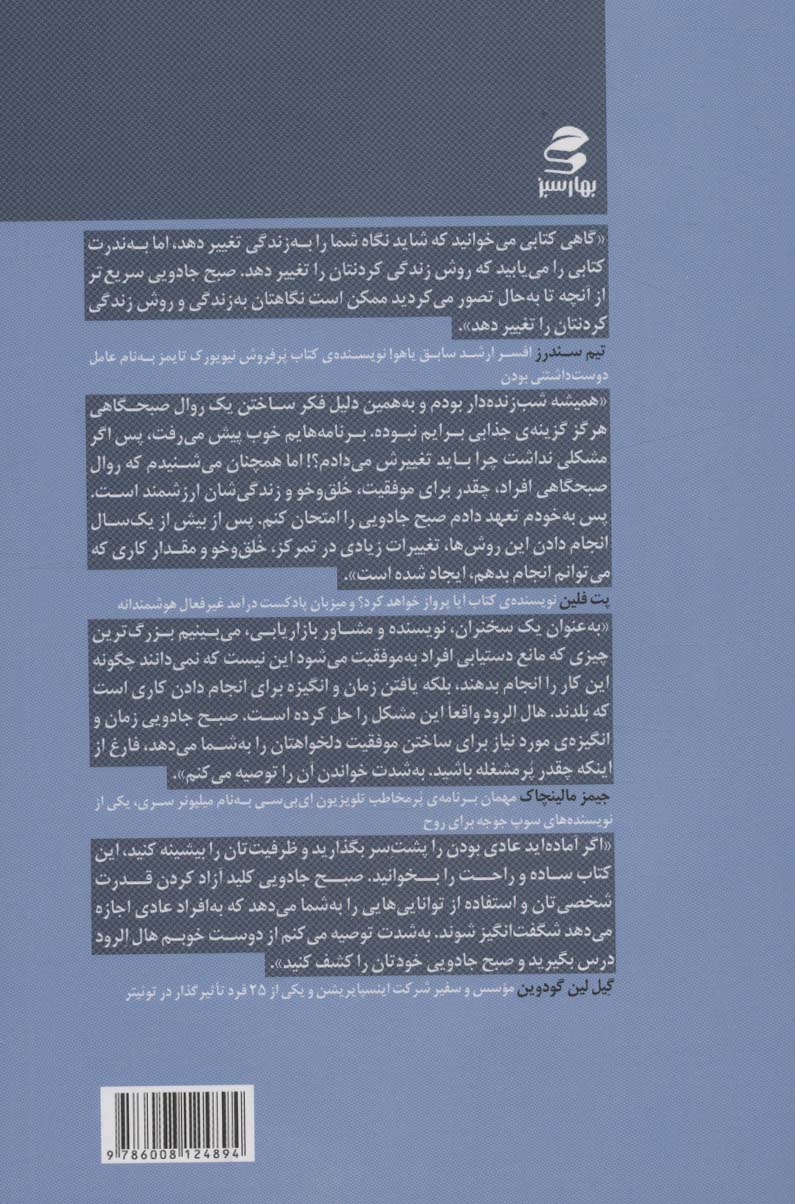 بهار سبز
«گاهی کتابی می‌خوانید که شاید نگاه شما را به‌زندگی تغییر دهد، اما به‌ندرت
کتابی را می‌یابید که روش زندگی کردنتان را تغییر دهد. صبح جادویی سریع‌تر
از آنچه تا به‌حال تصور می‌کردید ممکن است نگاهتان به‌زندگی و روش زندگی
کردنتان را تغییر دهد».
تیم سندرز افسر ارشد سابق یاهو! نویسنده‌ی کتاب پُرفروش نیویورک تایمز به‌نام عامل
دوست‌داشتنی بودن
«همیشه شب‌زنده‌دار بودم و به‌همین دلیل فکر ساختن یک روال صبحگاهی
هرگز گزینه‌ی جذابی برایم نبوده. برنامه‌هایم خوب پیش می‌رفت، پس اگر
مشکلی نداشت چرا باید تغییرش می‌دادم؟! اما همچنان می‌شنیدم که روال
صبحگاهی افراد، چقدر برای موفقیت، خُلق‌وخو و زندگی‌شان ارزشمند است.
پس به‌خودم تعهد دادم صبح جادویی را امتحان کنم. پس از بیش از یک‌سال
انجام دادن این روش‌ها، تغییرات زیادی در تمرکز، خُلق‌وخو و مقدار کاری که
می‌توانم انجام بدهم، ایجاد شده است».
پت فلین نویسنده‌ی کتاب آیا پرواز خواهد کرد؟ و میزبان پادکست درآمد غیرفعال هوشمندانه
«به‌عنوان یک سخنران، نویسنده و مشاور بازاریابی، می‌بینیم بزرگ‌ترین
چیزی که مانع دستیابی افراد به‌موفقیت می‌شود این نیست که نمی‌دانند چگونه
این کار را انجام بدهند، بلکه یافتن زمان و انگیزه برای انجام دادن کاری است
که بلدند. هال الرود واقعاً این مشکل را حل کرده است. صبح جادویی زمان و
انگیزه‌ی مورد نیاز برای ساختن موفقیت دلخواهتان را به‌شما می‌دهد، فارغ از
اینکه چقدر پُرمشغله باشید. به‌شدت خواندن آن را توصیه می‌کنم».
جیمز مالینچاک مهمان برنامه‌ی پُرمخاطب تلویزیون ای‌بی‌سی به‌نام میلیونر سری، یکی از
نویسنده‌های سوپ جوجه برای روح
«اگر آماده‌اید عادی بودن را پشت‌سر بگذارید و ظرفیت‌تان را بیشینه کنید، این
کتاب ساده و راحت را بخوانید. صبح جادویی کلید آزاد کردن قدرت
شخصی‌تان و استفاده از توانایی‌هایی را به‌شما می‌دهد که به‌افراد عادی اجازه
می‌دهد شگفت‌انگیز شوند. به‌شدت توصیه می‌کنم از دوست خوبم هال الرود
درس بگیرید و صبح جادویی خودتان را کشف کنید».
گیل لین گودوین مؤسس و سفیر شرکت اینسپایریشن و یکی از ۲۵ فرد تأثیرگذار در توئیتر
9 786008 124894